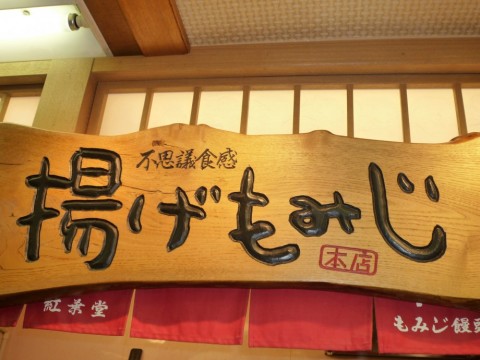 不思議食感
揚げもみじ
本店
紅葉堂
もみじ饅頭